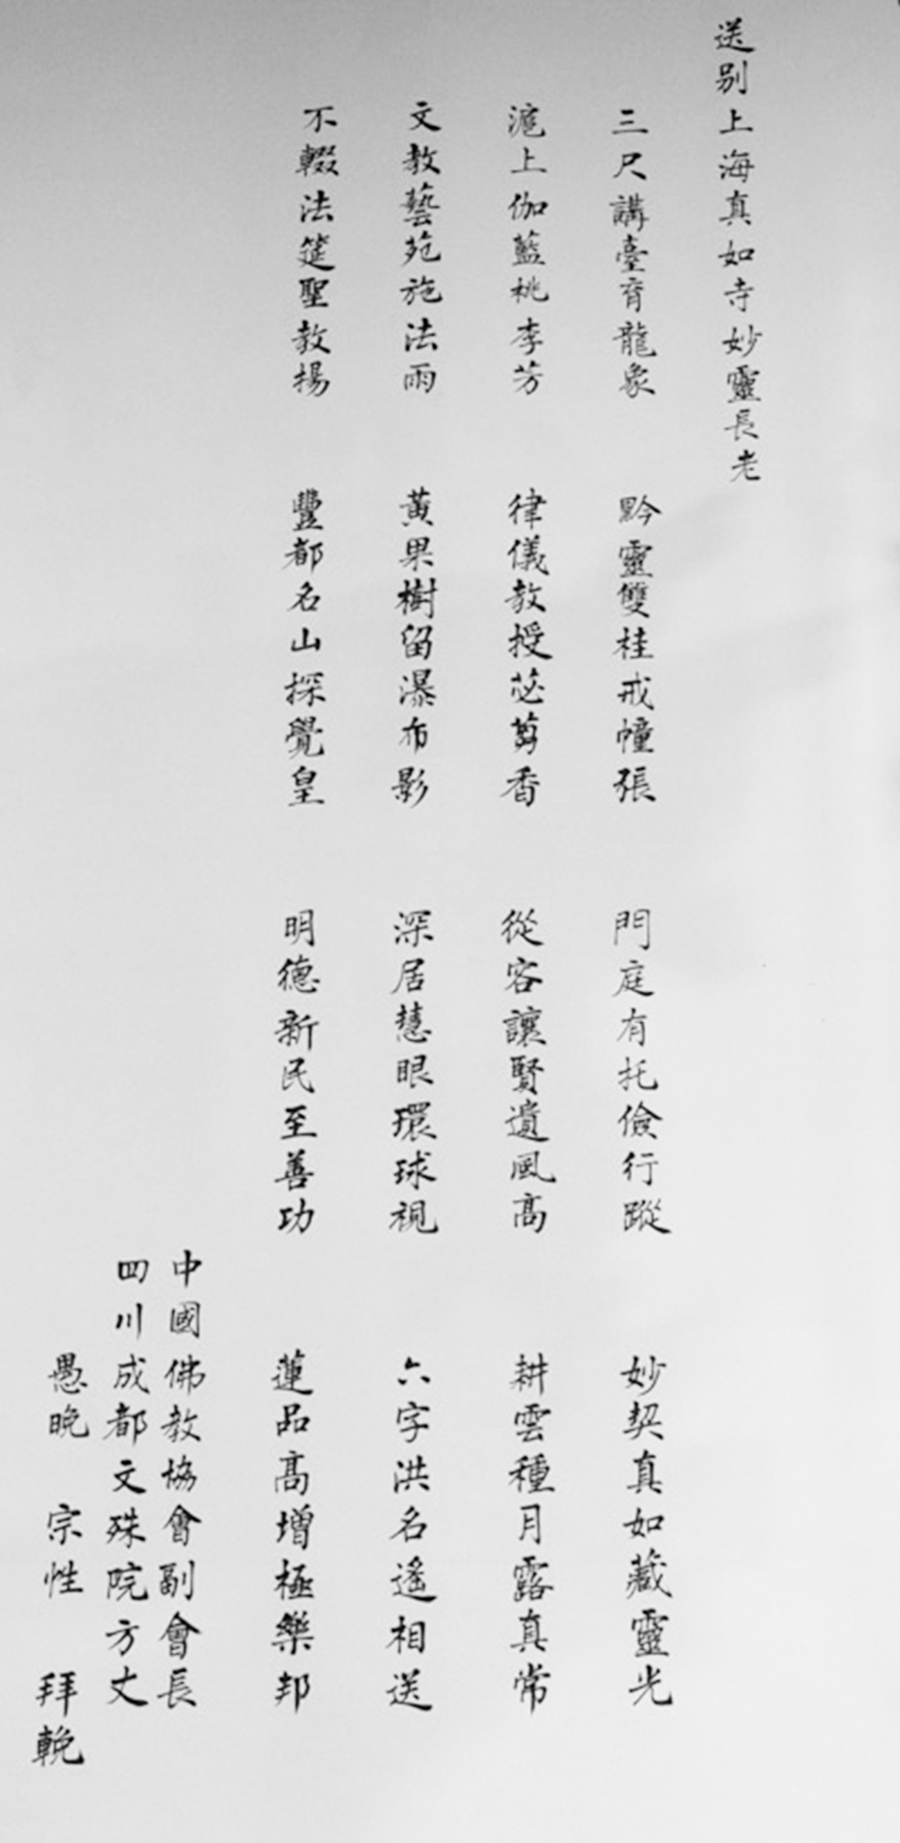 送别上海真如寺妙靈長老
三尺講臺育龍象 黔靈雙桂戒幢張 門庭有托儉行蹤 妙契真如藏靈光
滬上伽藍桃李芳 律儀教授苾蒭香 從容讓賢遺風高 耕雲種月露真常
文教藝苑施法雨 黄果樹留瀑布影 深居慧眼環球視 六字洪名遙相送
不輟法筵聖教揚 豐都名山探覺皇 明德新民至善功 蓮品高增極樂邦
中國佛教協會副會長
四川成都文殊院方丈
愚晚 宗性 拜輓